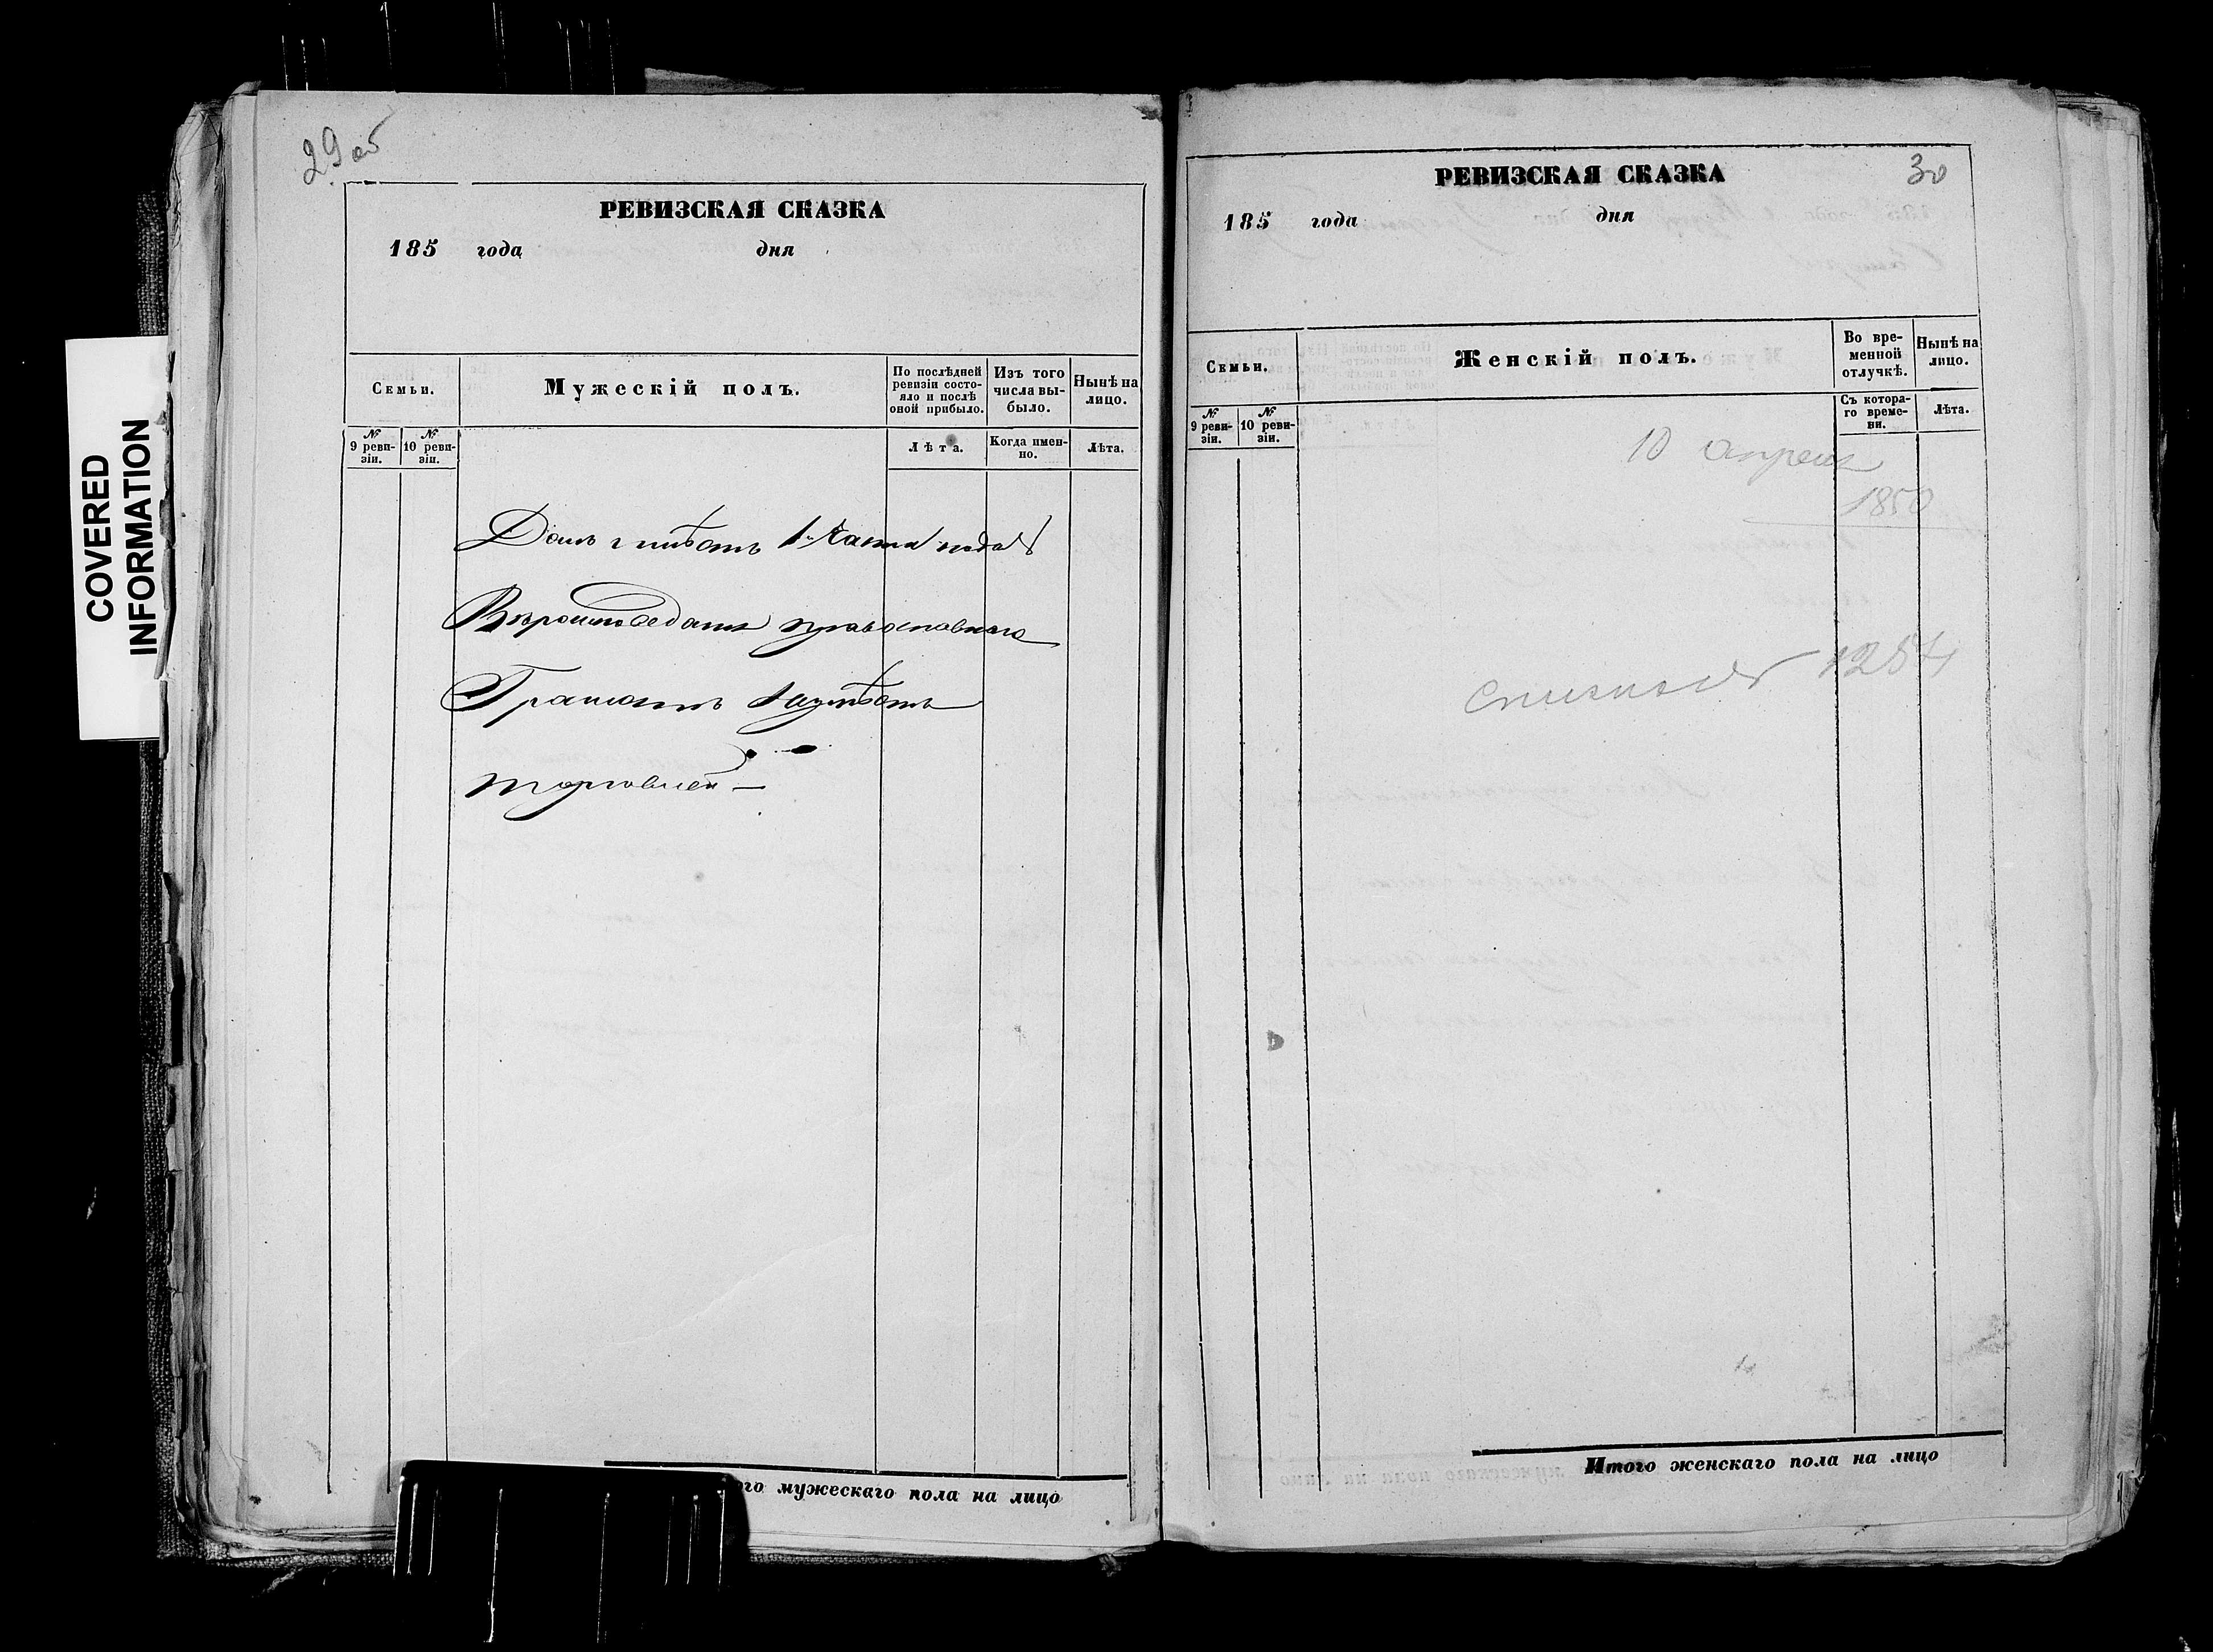 COVERED
INFORMATION
29 об
РЕВИЗСКАЯ СКАЗКА
185 года дня
Семьи.
Мужескій полъ.
По послѣдней
ревизіи состо-
яло и послѣ
оной прибыло.
Изъ того
числа вы-
было.
Нынѣ на
лицо.
№
9 реви-
зіи.
№
10 реви-
зіи.
Лѣта.
Когда имен-
но.
Лѣта.
Домъ имѣетъ
Вѣроисповеданія православнаго
Грамотѣ
торговлей —
го мужескаго пола на лицо
РЕВИЗСКАЯ СКАЗКА
30
185 года дня
Семьи.
Женскій полъ.
Во вре-
менной
отлучкѣ.
Нынѣ на
лицо.
№
9 реви-
зіи.
№
10 реви-
зіи.
Съ котора-
го време-
ни.
Лѣта.
10 апреля
1850
1254
Итого женскаго пола на лицо